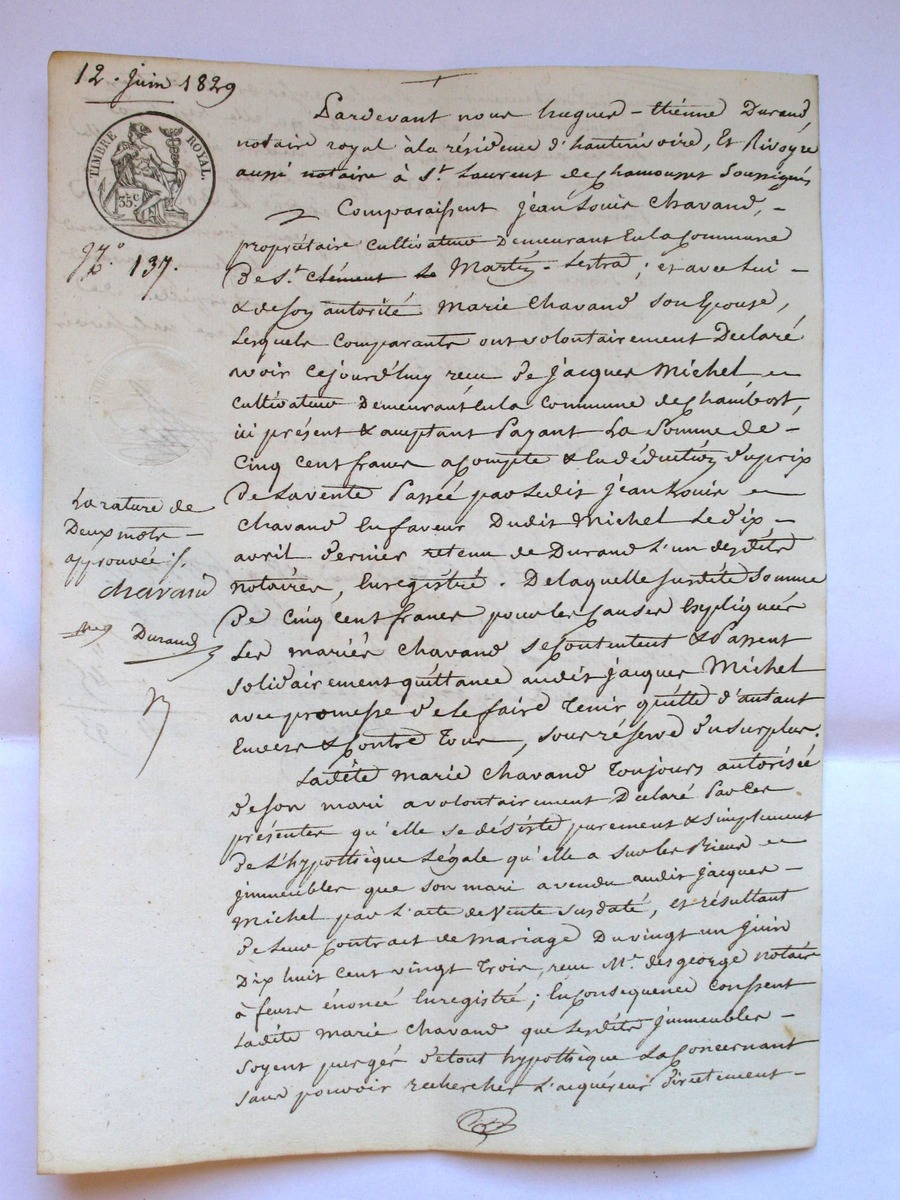 12. Juin 1829
TIMBRE ROYAL.
35.c
N.o 137.
Pardevant nous hugues-étienne Durand,
notaire royal à la résidence d'hauterivoire, Et Rivoyre
aussi notaire à St. Laurent de chamousset Soussignés
Comparaissent jean Louis Chavand,-
propriétaire cultivateur Demeurant En la Commune
De St. Clément Le Martin-Lestra; et avec Lui-
& de son autorité Marie Chavand son Epouse,
Lesquels Comparants ont volontairement Declaré
avoir Cejourd'huy recu De jacques Michel
Cultivateur Demeurant En la Commune de Chambost,
ici présent & acceptant Payant La Somme De-
Cinq Cent francs acompte & En déduction Du prix
De La vente Passée par Ledit jean Louis
Chavand En faveur Dudit Michel Le Dix-
avril Dernier retenu de Durand L'un desdits
notaires, Enregistré. De laquelle Susdite Somme
De Cinq Cent francs pour les Causes Expliquées
Les mariés Chavand se Contentent & Passent
Solidairement quittance audit jacques Michel
avec promesse De le faire Tenir quitte d'autant
Envers & Contre Tous, sous réserve Du Surplus.
Ladite Marie Chavand Toujours autorisée
De son mari a volontairement Declaré Par Ces
présentes qu'elle se désiste purement & simplement
De L'hypothèque Légale qu'elle a sur les Biens
jmmeubles que son mari a vendu audit jacques-
Michel par L'acte de Vente Susdaté, et résultant
De Leur Contrat de mariage Du vingt un juin
Dix huit Cent vingt Trois, recu Me. desgeorge notaire
à feurs énoncé Enregistré; En Conséquence Consent
Ladite Marie Chavand que Lesdits jmmeubles-
Soyent purgés De tout hypothèque La Concernant
sans pouvoir rechercher L'acquéreur Directement-
La rature de
Deux mots-
approuvée
chavand
Durand